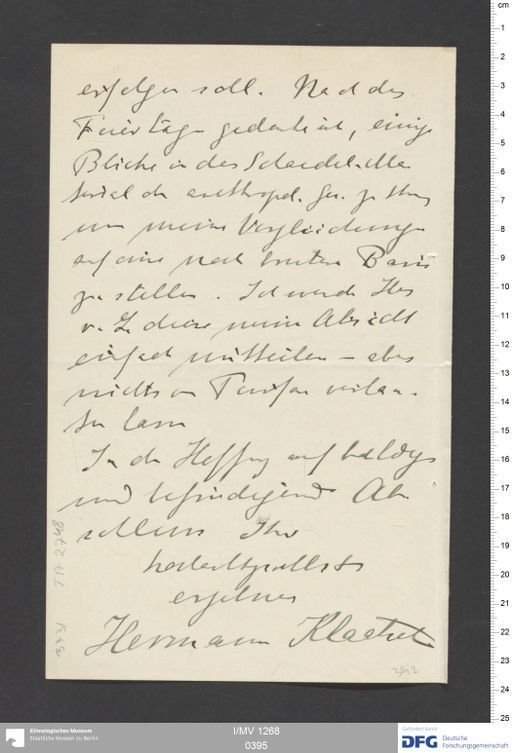 erfolgen soll. Nach den
Feiertagen gedenke ich, einige
Blicke in das Schaedel-Ma
terial der anthropol. Ges. zu thun
um meine Vergleichungen
auf eine noch breitere Basis
zu stellen. Ich werde Hrn
v. L. diese meine Absicht
einfach mittheilen – aber
nichts von Turfan verlau-
ten lassen
In der Hoffnung auf baldigen
und befriedigenden Ab
schluss Ihr
hochachtungsvollst
ergebener
Hermann Klaatsch
I/MV 1268
0395
Ethnologisches Museum
Staatliche Museen zu Berlin
Gefördert durch
DFG Deutsche
Forschungsgemeinschaft
cm
1
2
3
4
5
6
7
8
9
10
11
12
13
14
15
16
17
18
19
20
21
22
23
24
25